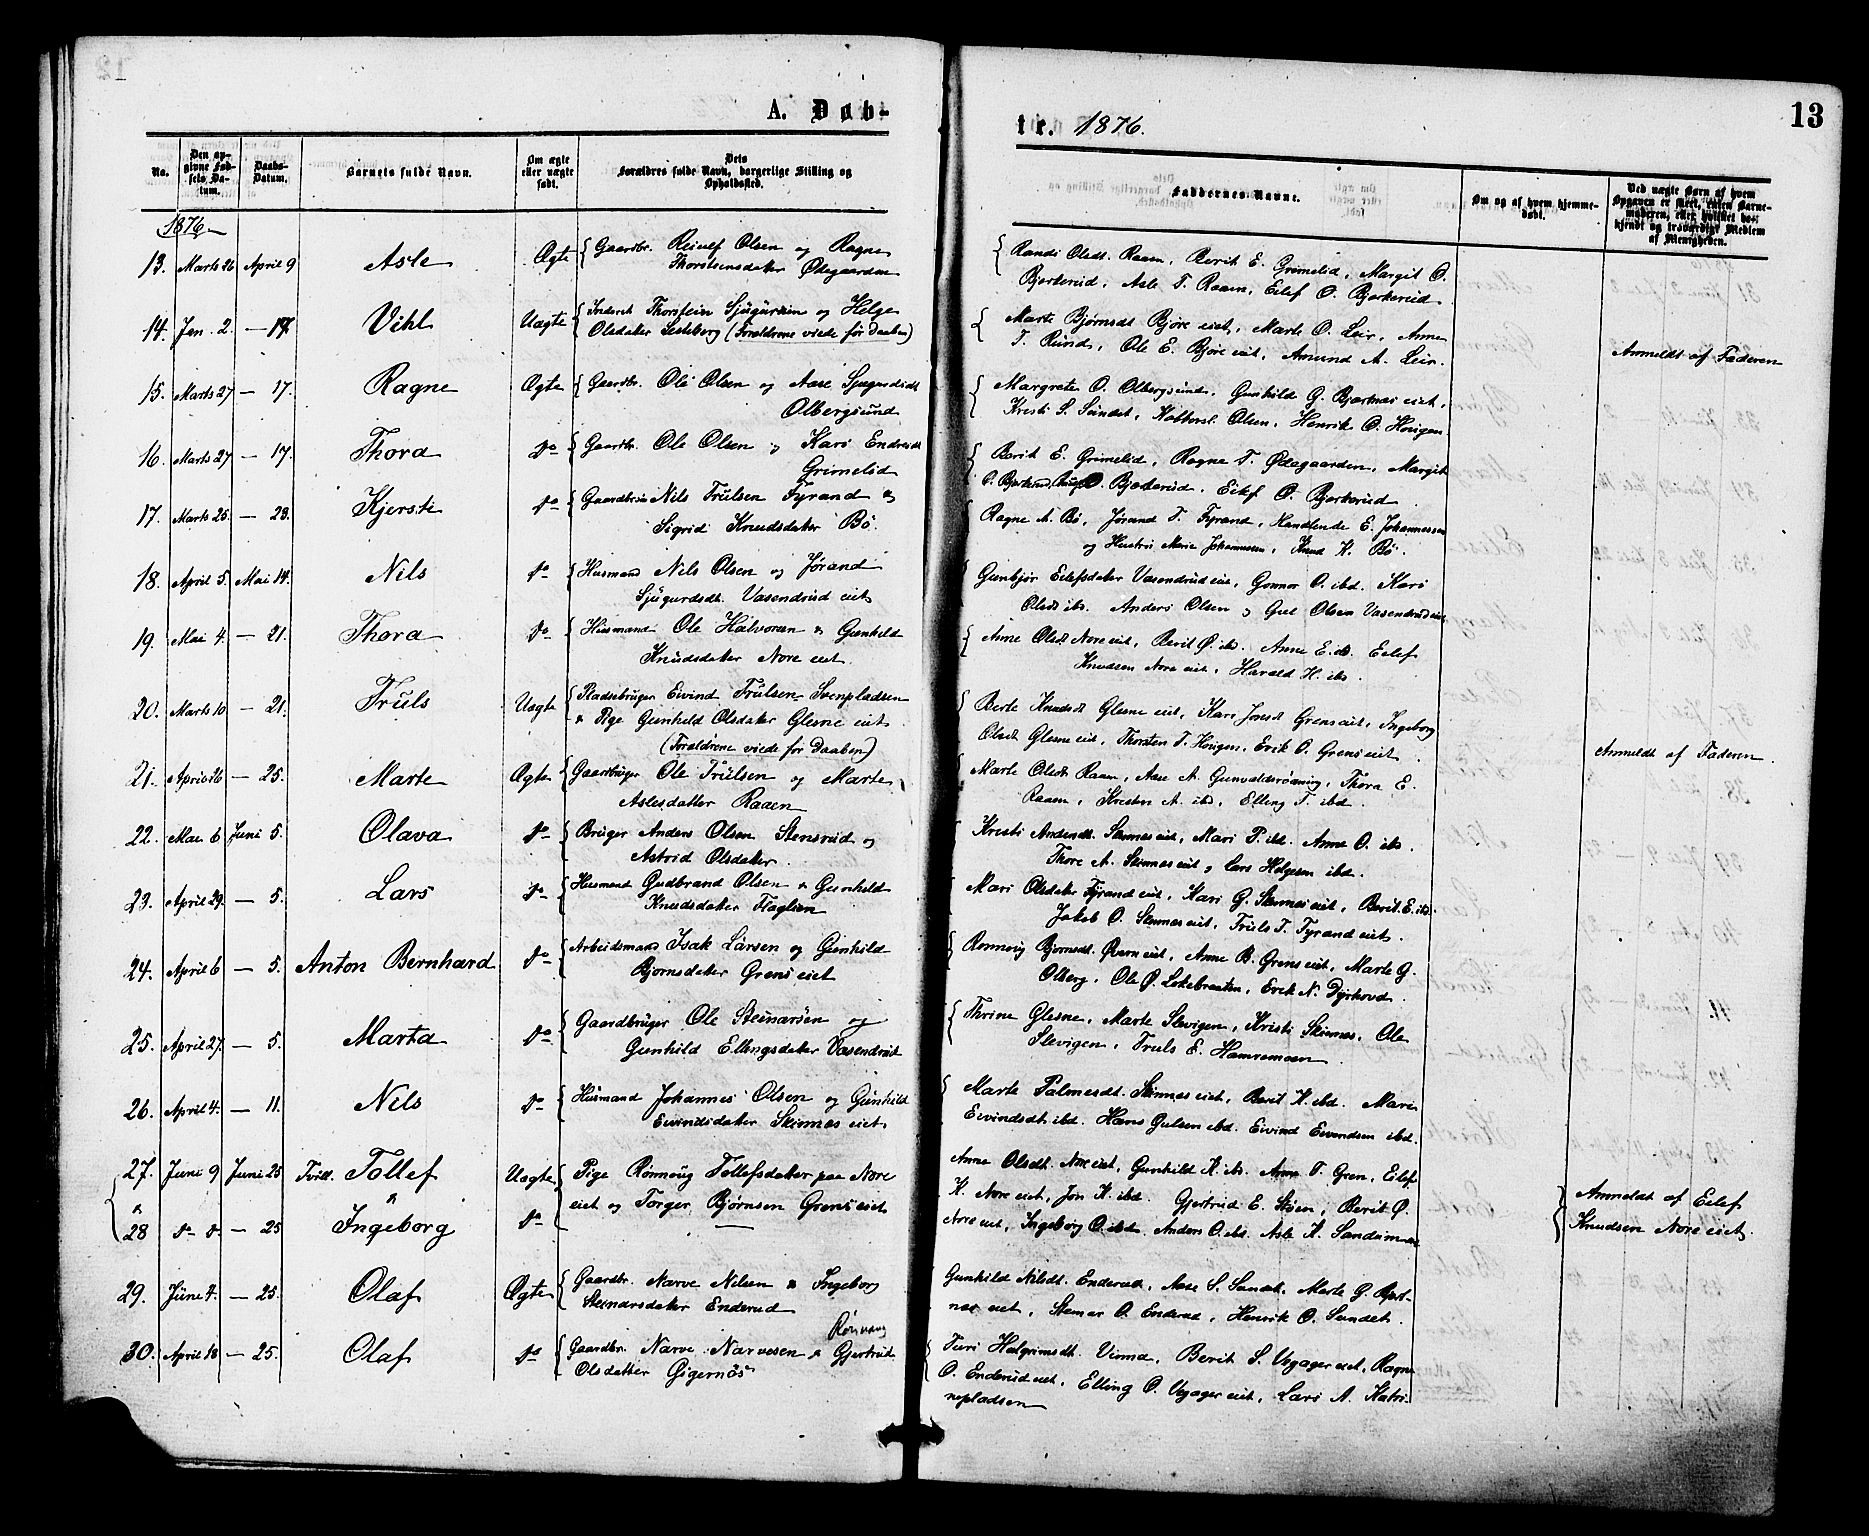 13
A. Døb-
tr. 1876.
No.
Den op-
givne Fød-
sels Da-
tum.
Daabs-
Datum.
Barnets fulde Navn.
Om ægte
eller uægte
født.
Dets
Forældres fulde Navn, borgerlige Stilling og
Opholdssted.
Faddernes Navne.
Om og af hvem hjemme-
døbt.
Ved uægte Børn af hvem
Opgaven er skeet, enten Barne-
moderen, eller hvilket be-
kjendt og troværdigt Medlem
af Menigheden.
1876
13. Marts 26 April 9 Asle Ægte Gaardbr. Reiulf Olsen og Ragne
Thorstensdater Ødegaarden
Randi Olsdt. Raaen, Berit E. Grimelid, Margit O.
Bjørkerud, Asle T. Raaen, Eilef O. Bjørkerud
14. Jan. 2. — 17. Vihl Uægte Thorstein Sjugursen og Helge
Olsdater Lesteberg (Forældrene viede før Daaben)
Marte Bjørnsdt Bjøre eiet, Marte O. Leir, Anne
T. Rund, Ole E. Bjøre eiet, Amund A. Leir.
Anmeldt af Faderen
15. Marts 27 — 17. Ragne Ægte Gaardbr. Ole Olsen og Aase Sjugurdsdt
Olbergsund
Margrete O. Olbergsund, Gunhild G. Bjørtnes eiet,
Kristi S. Sundet, Olsen, Henrik O. Haugen
16. Marts 27 — 17. Thora do Gaardbr. Ole Olsen og Kari Endresdt
Grimelid
Berit E. Grimelid, Ragne T. Ødegaarden, Margit
O. Bjørkerud, O. Bjørkerud, Eilef O. Bjørkerud
17. Marts 25. — 23. Kjersti do Gaardbru Nils Trulsen Fyrand &
Sigrid Knudsdater Bö.
Ragne A. Bö, Jörand T. Fyrand, Handlende E. Johannessen
og Hustru Marie Johannessen, Knud K. Bö.
18. April 5. Mai 14. Nils do Husmand Nils Olsen og Jørand
Sjugurdsdt. Vasendrud eiet
Gunbjør Eilefsdater Vasendrud eiet, Gunnor O. ibd. Kari
Olsdt ibd. Anders Olsen og Olsen Vasendrud eiet
19. Mai 4. — 21. Thora do Husmand Ole Halvorsen & Gunhild
Knudsdater Nore eiet.
Anne Olsdt Nore eiet, Berit Ø. ibd. Anne E. ibd. Eilef
Knudsen Nore eiet, Harald H. ibd.
20. Marts 10. — 21. Truls Uægte Pladsebruger Eivind Trulsen Svenpladsen
& Pige Gunhild Olsdater Glesne eiet
(Forældrene viede før Daaben)
Berte Knudsdt Glesne eiet, Kari Jonsdt Grens eiet, Ingeborg
Olsdt Glesne eiet, Thorsten T. Haugen, Erik O. Grens eiet.
Anmeldt af Faderen.
21. April 26 — 25. Marte Ægte Gaardbruger Ole Trulsen og Marte
Aslesdatter Raaen
Marte Olsdt. Raaen, Aase A. Gunvaldsrøning, Thora E.
Raaen, Kristen A. ibd, Elling T. ibd.
22. Mai 6 Juni 5. Olava do Bruger Anders Olsen Stensrud og
Astrid Olsdater.
Kristi Andersdt. Skinnes eiet, Mari P. ibd. Anne O. ibd.
Thore A. Skinnes eiet, og Lars Helgesen ibd.
23. April 29. — 5. Lars do Husmand Gudbrand Olsen & Gunhild
Knudsdater Flaglien
Mari Olsdater Fyrand eiet, Kari G. Skinnes eiet, Berit E. ibd.
Jakob O. Skinnes eiet, Truls T. Fyrand eiet.
24. April 6 — 5. Anton Bernhard do Arbeidsmand Isak Larsen og Gunhild
Bjørnsdater Grens eiet
Rønnoug Bjørnsdt. Kvern eiet, Anne B. Grens eiet, Marte G.
Olberg, Ole Ø. Løkebraaten, Erik N. Dyrhovd.
25. April 27. — 5. Marta do Gaardbruger Ole Steinarsen og
Gunhild Ellingsdater Vasendrud
Thrine Glesne, Marte Slevigen, Kristi Skinnes, Ole
Slevigen, Truls E. Hamremoen
26. April 4. — 11. Nils do Husmand Johannes Olsen og Gunhild
Eivindsdater Skinnes eiet
Marte Palmesdt. Skinnes eiet, Berit K. ibd. Mari
Eivindsdt ibd. Hans Gulsen ibd. Eivind Eivindsen ibd.
27. Juni 9 Juni 25 Tvill. Tollef Uægte Pige Rønnoug Tollefsdater paa Nore
&
28 do do — 25 Ingeborg do eiet og Torger Bjørnsen Grens eiet
Anne Olsdt. Nore eiet, Gunhild K. ibd. Anne T. Gren, Eilef
K. Nore eiet, Jon K. ibd. Gjertrud E. Støen, Berit Ø.
Nore eiet, Ingeborg O. ibd. Anders O. ibd. Asle K.
Anmeldt af Eilef
Knudsen Nore eiet.
29. Juni 4. — 25. Olaf Ægte Gaardbr. Narve Nilsen & Ingeborg
Steinarsdater Enderud
Gunhild Nilsdt. Enderud, Aase S. Sundt, Marte G. Bjørt-
nes eiet, Steinar O. Enderud, Henrik O. Sundet.
30. April 18 — 25. Olaf do Gaardbr. Narve Narvesen & Gjertrud
Rönnoug
Olsdatter Gigernös
Turi Halgrimsdt. Vinna, Berit S. Vegager eiet, Ragne
O. Enderud eiet, Elling O. Vegager eiet, Lars A. Katri-
nepladsen